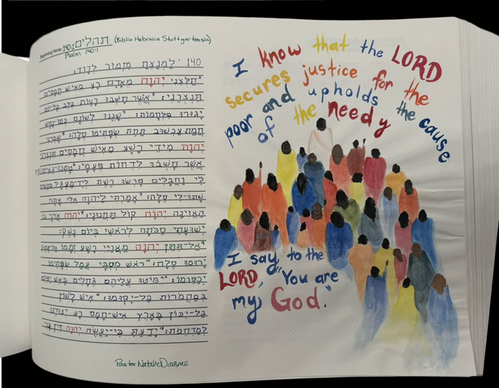 תהלים
Psalm 140:1
(Biblia Hebraica Stuttgartensia)
140 למנצח מזמור לדוד
חלצני יהוה מאדם רע מאיש חמסים
תנצרני אשר חשבו רעות בלב כל־יום
יגורו מלחמות שננו לשונם כמו־נחש
חמת עכשוב תחת שפתימו סלה שמרני
יהוה מידי רשע מאיש חמסים תנצרני
אשר חשבו לדחות פעמי
לי וחבלים פרשו רשת ליד־מעגל
שתו־לי סלה אמרתי ליהוה אלי אתה
האזינה יהוה קול תחנוני יהוה אדני עז
ישועתי סכתה לראשי ביום נשק
אל־תתן יהוה מאויי רשע זממו אל־תפק
ירומו סלה ראש מסבי עמל שפתימו
יכסומו ימיטו עליהם גחלים באש יפלם
במהמרות בל־יקומו איש לשון
בל־יכון בארץ איש־חמס רע יצודנו
למדחפת ידעת כי־יעשה יהוה דין עני
I know that the LORD
secures justice for the
poor and upholds the cause
of the needy
I say to the
LORD, "You are
my God."